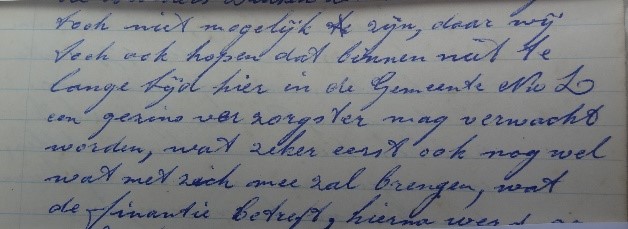 toch niet mogelijk te zijn, daar wij
toch ook hopen dat binnen niet te
lange tijd hier in de Gemeente N.w.L
een gezins verzorgster mag verwacht
worden, wat zeker eerst ook nog wel
wat met zich mee zal brengen, wat
de finantie betreft, hierna werd